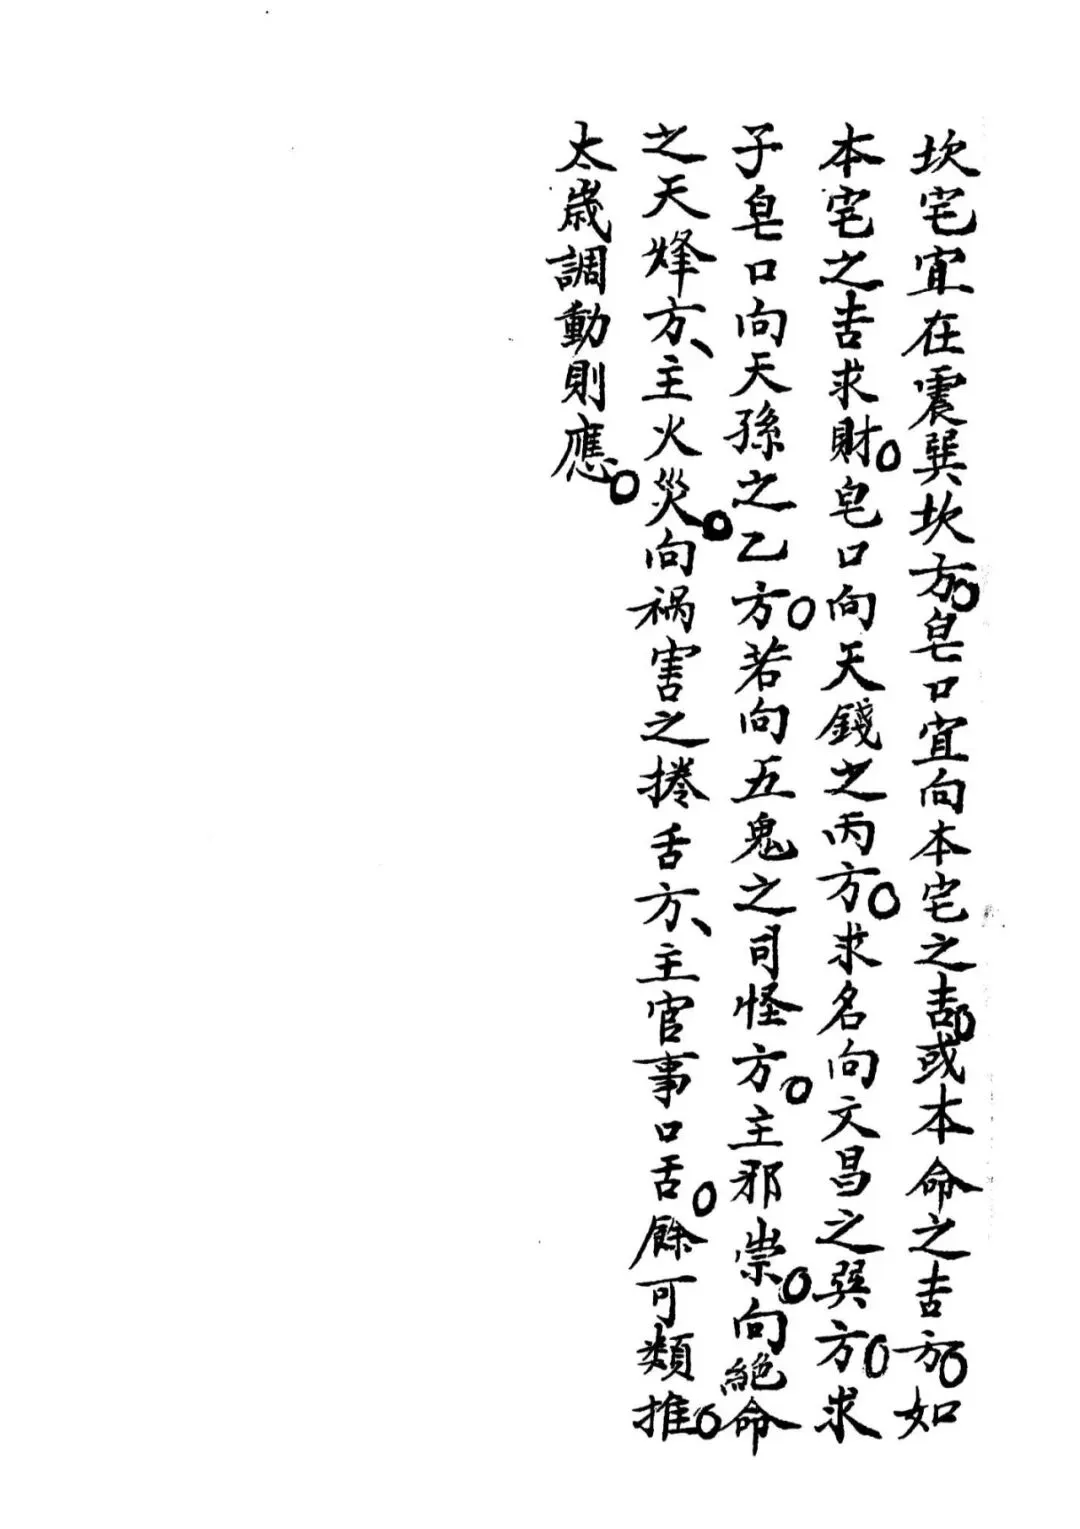 坎宅宜在震巽坎方。皂口宜向本宅之吉。或本命之吉方。如
本宅之吉求財。皂口向天錢之丙方。求名向文昌之巽方。求
子皂口向天孫之乙方。若向五鬼之司怪方。主邪崇。向絕命
之天烽方、主火災。向祸害之捲舌方、主官事口舌。餘可類推。
太歲調動則應。